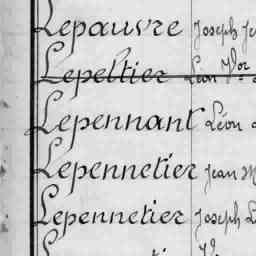 Lepauvre Joseph
Lepeltier Léon Vor
Lepennant Léon
Lepennetier Jean M
Lepennetier Joseph L